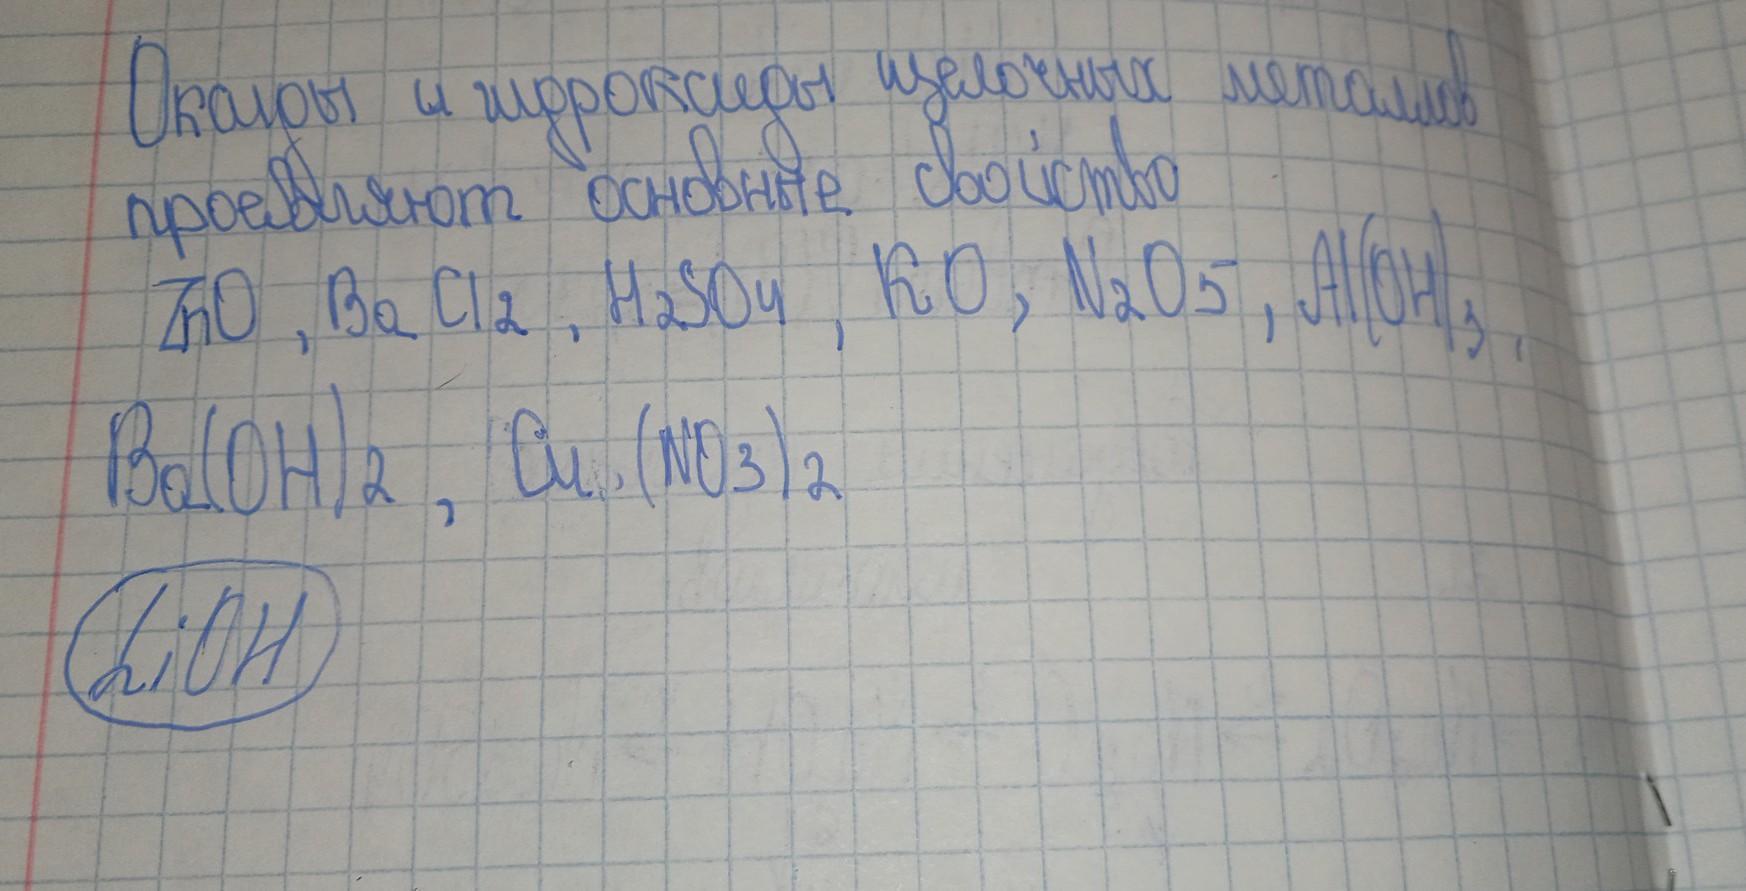 Окалоы и гидроксиды щелочных металлов
проевляют основные свойство
ZnO, BaCl2, H2SO4, KO, N2O5, Al(OH)3,
Ba(OH)2, Cu(NO3)2
LiOH